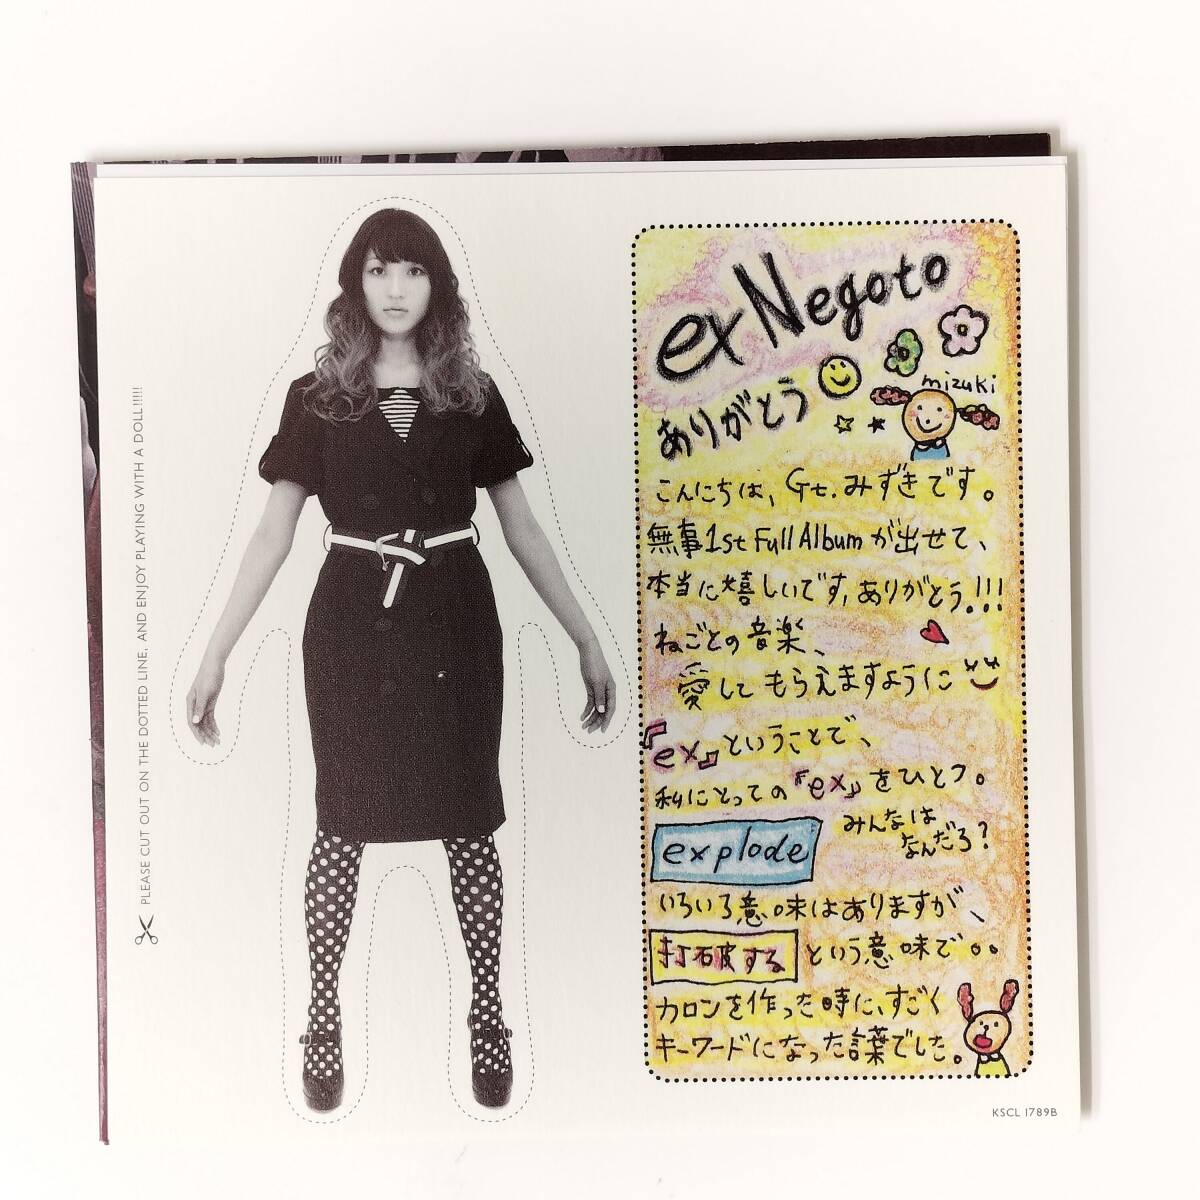 PLEASE CUT OUT ON THE DOTTED LINE, AND ENJOY PLAYING WITH A DOLL!!!!!
ex Negoto
ありがとう
mizuki
こんにちは、Gt.みずきです。
無事1st Full Albumが出せて、
本当に嬉しいです,ありがとう!!!
ねごとの音楽、
愛してもらえますように
『ex』ということで、
私にとっての『ex』をひとつ。
みんなは
なんだろ?
explode
いろいろ意味はありますが、
打破する という意味で。。
カロンを作った時に、すごく
キーワードになった言葉でした。
KSCL 1789B